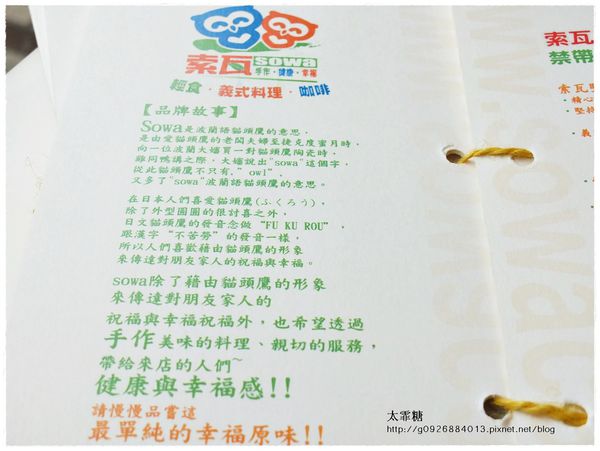 索瓦 sowa
手作·健康·幸福
輕食·義式料理·咖啡
【品牌故事】
Sowa是波蘭語貓頭鷹的意思，
是由愛貓頭鷹的老闆夫婦至捷克度蜜月時，
向一位波蘭大嬸買一對貓頭鷹陶瓷時，
雞同鴨講之際，大嬸說出"sowa"這個字，
從此貓頭鷹不只有,"owl"，
又多了"sowa"波蘭語貓頭鷹的意思。
在日本人們喜愛貓頭鷹(ふくろう)，
除了外型圓圓的很討喜之外，
日文貓頭鷹的發音念做"FU KU ROU"，
跟漢字"不苦勞"的發音一樣，
所以人們喜歡藉由貓頭鷹的形象
來傳達對朋友家人的祝福與幸福。
sowa除了藉由貓頭鷹的形象
來傳達對朋友家人的
祝福與幸福祝福外，也希望透過
手作美味的料理、親切的服務，
帶給來店的人們~
健康與幸福感!!
請慢慢品嘗這
最單純的幸福原味!!
索瓦
禁帶
索瓦堅
www.sowac
太霏糖
http://g0926884013.pixnet.net/blog